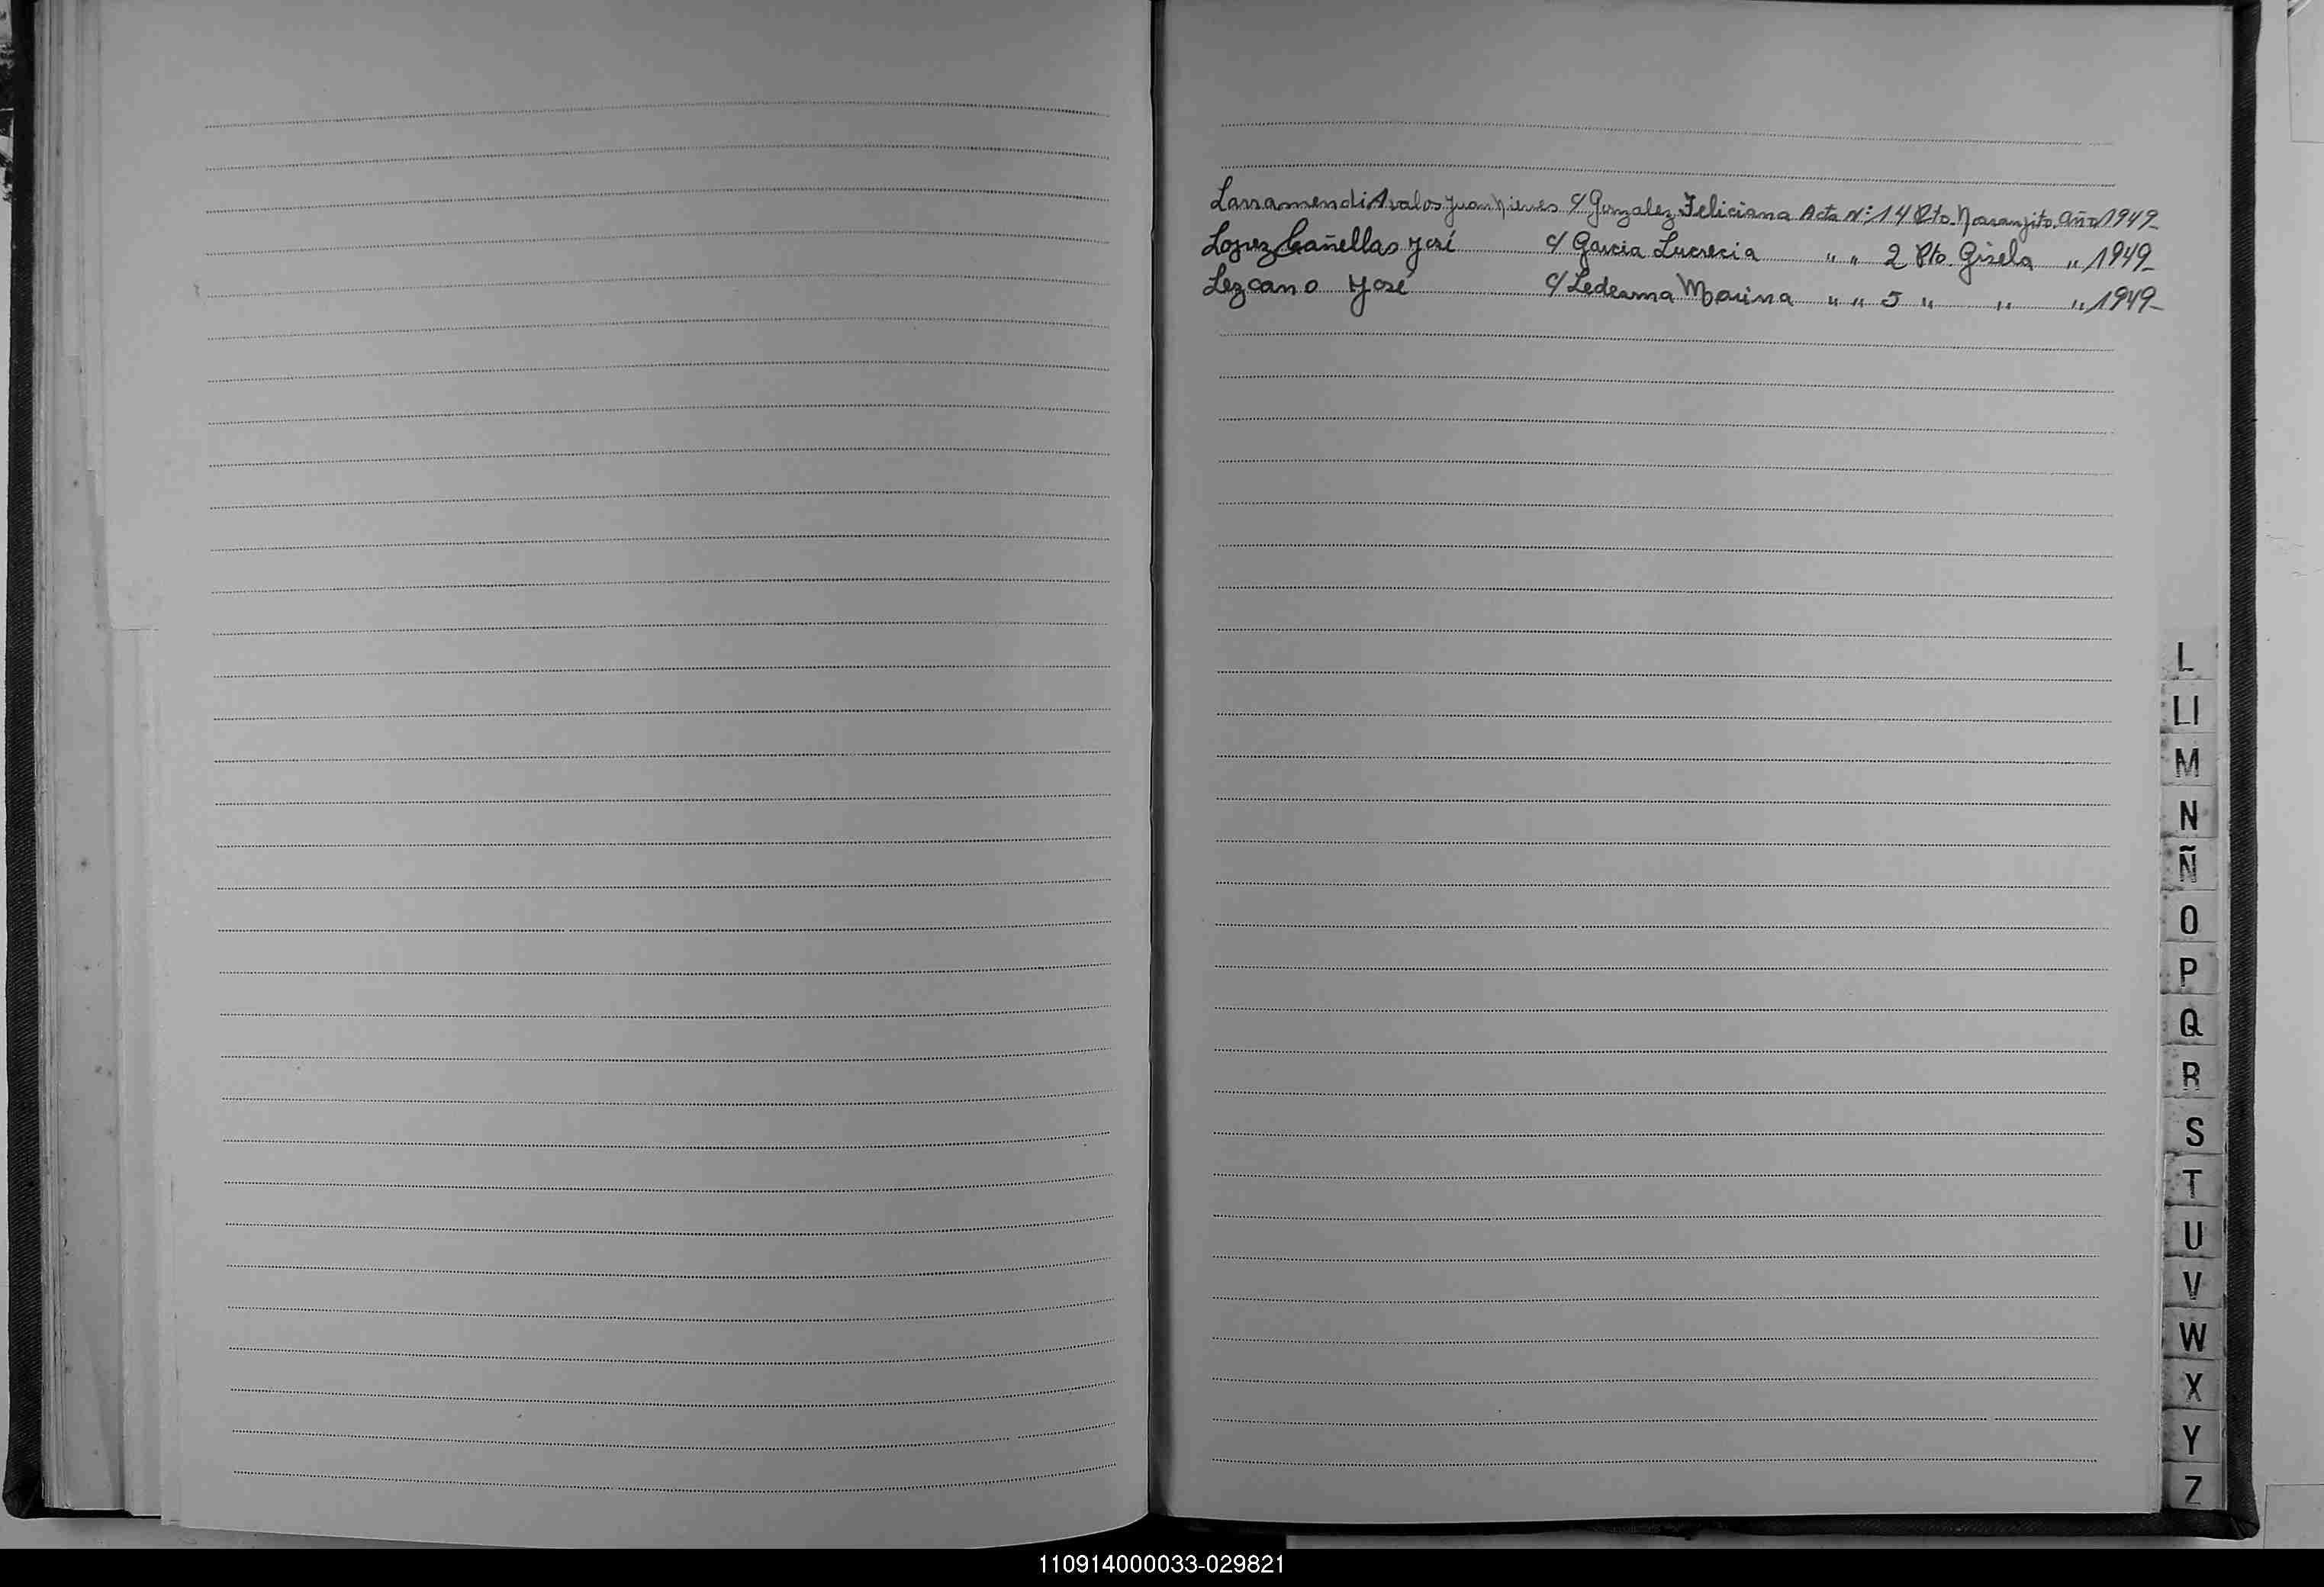 Larramendi Avalos Juan Nieves c/ Gonzalez Feliciana Acta Nº: 14 Pto. Naranjito. año 1949_
Lopez Cañellas José c/ Garcia Lucrecia " " 2 Pto. Gisela " 1949_
Lezcano José c/ Ledesma Marina " " 5 " " " 1949_
L
Ll
M
N
Ñ
O
P
Q
R
S
T
U
V
W
X
Y
Z
110914000033-029821